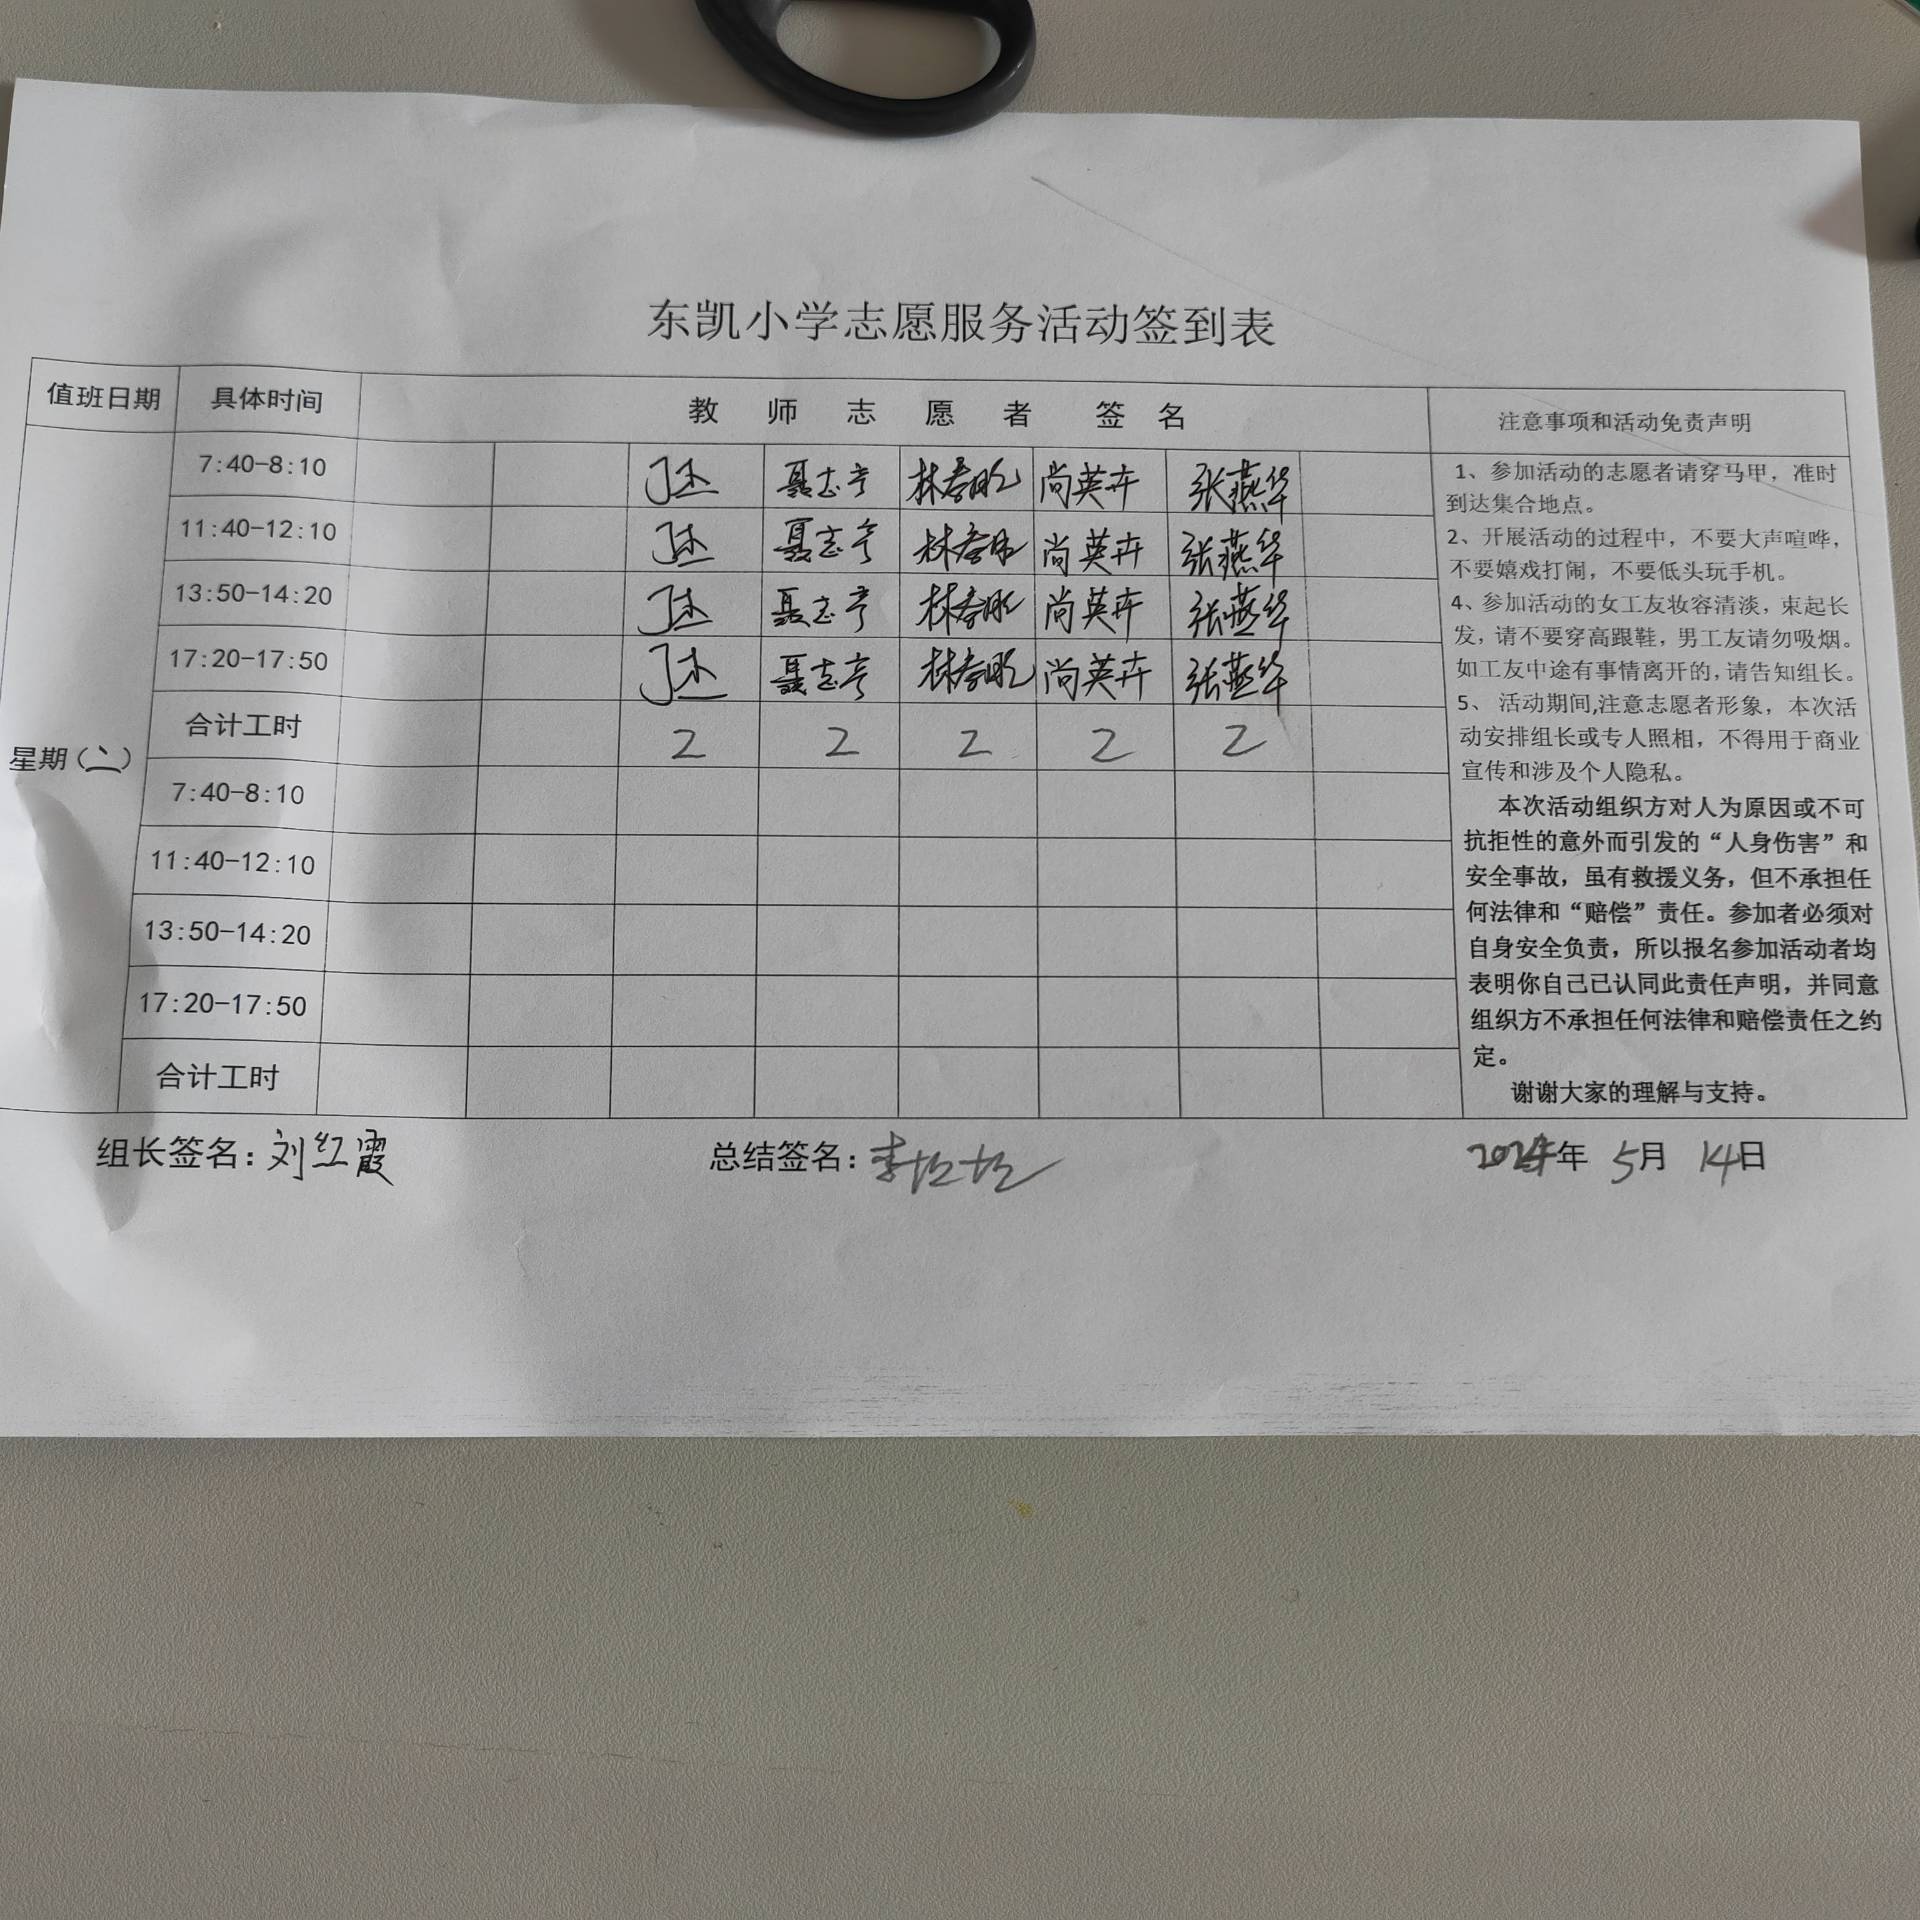 东凯小学志愿服务活动签到表
值班日期 具体时间 教师志愿者签名 注意事项和活动免责声明
星期(二)
7:40-8:10 聂志亭 尚英卉 张燕华
11:40-12:10 聂志亭 尚英卉 张燕华
13:50-14:20 聂志亭 尚英卉 张燕华
17:20-17:50 聂志亭 尚英卉 张燕华
合计工时 2 2 2 2 2
7:40-8:10
11:40-12:10
13:50-14:20
17:20-17:50
合计工时
1、参加活动的志愿者请穿马甲，准时
到达集合地点。
2、开展活动的过程中，不要大声喧哗，
不要嬉戏打闹，不要低头玩手机。
4、参加活动的女工友妆容清淡，束起长
发，请不要穿高跟鞋，男工友请勿吸烟。
如工友中途有事情离开的，请告知组长。
5、 活动期间,注意志愿者形象，本次活
动安排组长或专人照相，不得用于商业
宣传和涉及个人隐私。
本次活动组织方对人为原因或不可
抗拒性的意外而引发的“人身伤害”和
安全事故，虽有救援义务，但不承担任
何法律和“赔偿”责任。参加者必须对
自身安全负责，所以报名参加活动者均
表明你自己已认同此责任声明，并同意
组织方不承担任何法律和赔偿责任之约
定。
谢谢大家的理解与支持。
组长签名：刘红霞 总结签名： 2024年 5月 14日